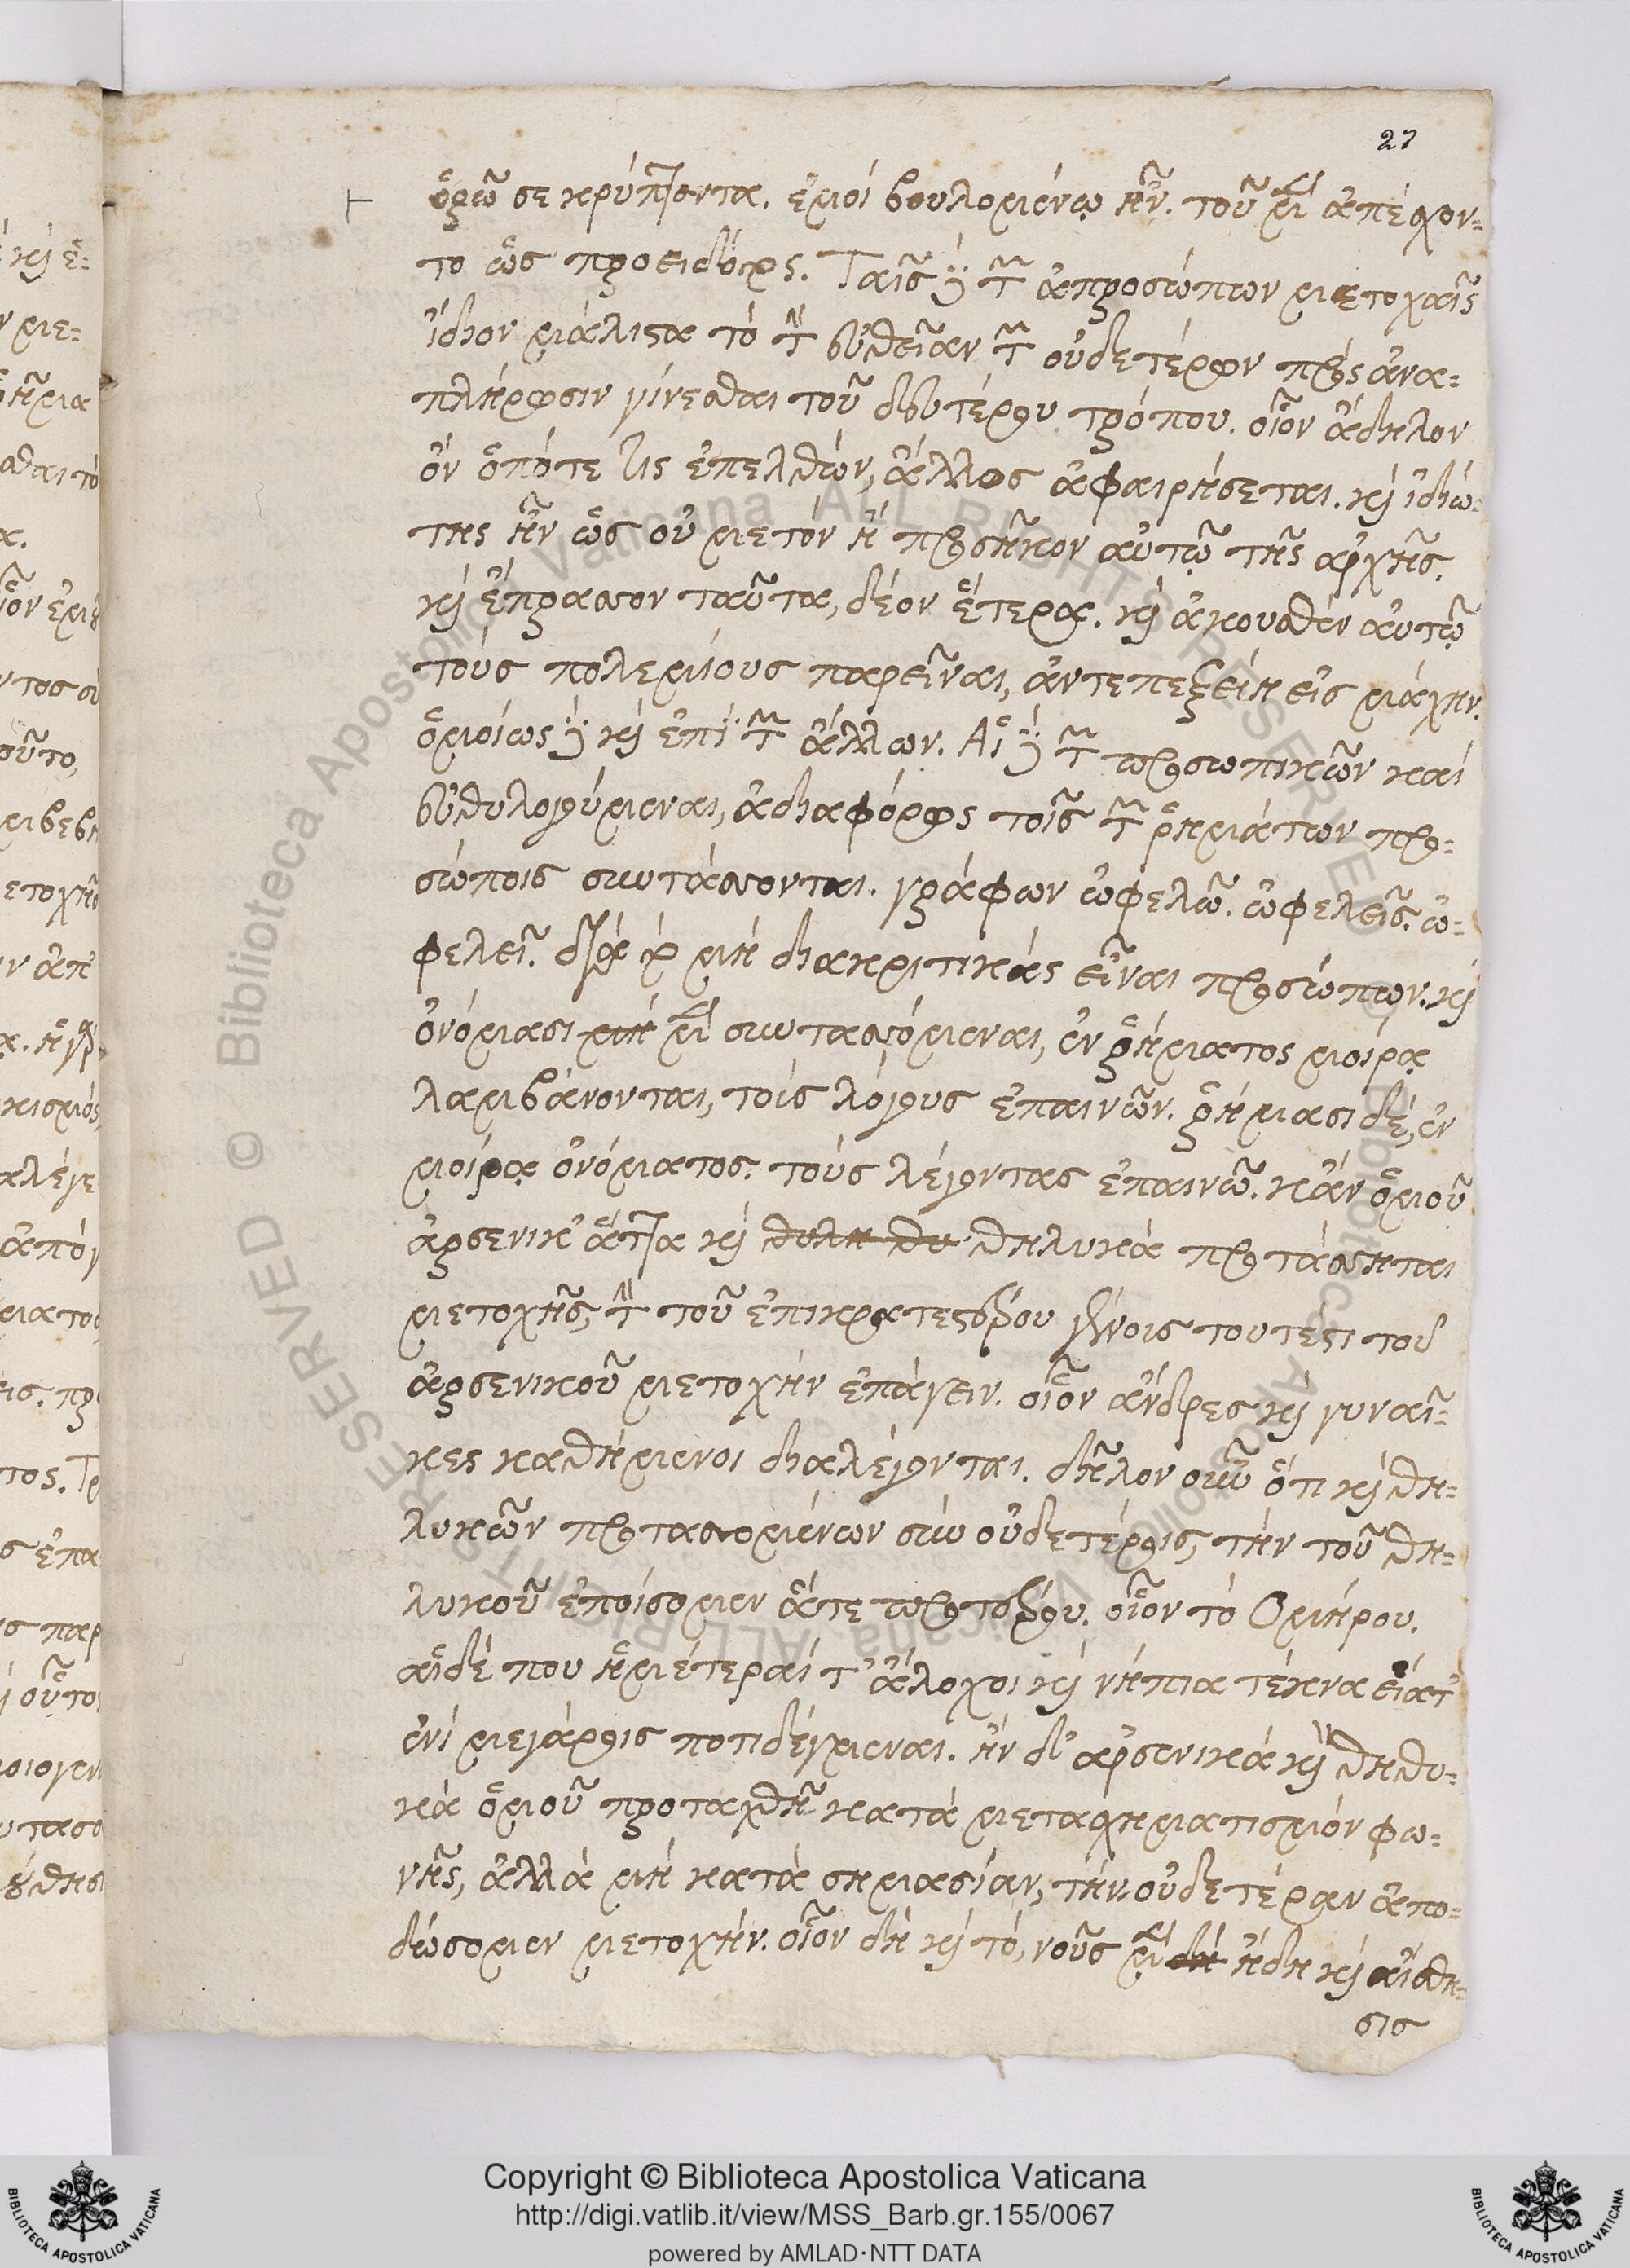 27
ὁρῶ σε κρύπτοντα. ἐμοὶ βουλομένῳ ἦν. τοῦ μὴ ἀπέχον-
το ὡς προειδότος. Ταῖς δὲ τῶν ἀπροσώπων μετοχαῖς
ἴδιον μάλιστα τὸ τὴν εὐθεῖαν τῶν οὐδετέρων πρὸς ἀνα-
πλήρωσιν γίνεσθαι τοῦ δευτέρου τρόπου. οἷον ἄδηλον
ὂν ὁπότε τις ἐπελθὼν, ἄλλος ἀφαιρήσεται. καὶ ἰδιώ-
της ἦν ὡς οὐ μετὸν ἢ προσῆκον αὐτῷ τῆς ἀρχῆς.
καὶ ἔπρασσον ταῦτα, δέον ἕτερα. καὶ ἀκουσθὲν αὐτῷ
τοὺς πολεμίους παρεῖναι, ἀντεπεξείη εἰς μάχην.
ὁμοίως δὲ καὶ ἐπὶ τῶν ἄλλων. Αἱ δὲ τῶν προσωπικῶν καὶ
εὐθυλογούμεναι, ἀδιαφόρως τοῖς τῶν ῥημάτων προ-
σώποις συντάσσονται. γράφων ὠφελῶ. ὠφελεῖς. ὠ-
φελεῖ. διὰ τὸ μὴ διακριτικὰς εἶναι προσώπων. καὶ
ὀνόμασι μὴ μὲν συντασσόμεναι, ἐν ῥήματος μοίρᾳ
λαμβάνονται, τοὺς λόγους ἐπαινῶν. ῥήμασι δὲ, ἐν
μοίρᾳ ὀνόματος. τοὺς λέγοντας ἐπαινῶ. κἂν ὁμοῦ
ἀρσενικ' ἄττα καὶ θυλη θυ θηλυκὰ προτάσσηται
μετοχῆς, τὴν τοῦ ἐπικρατεστέρου γένοις τουτέστι τοῦ
ἀρσενικοῦ μετοχὴν ἐπάγειν. οἷον ἄνδρες καὶ γυναῖ-
κες καθήμενοι διαλέγονται. δῆλον οὖν ὅτι καὶ θη-
λυκῶν προτασσομένων σὺν οὐδετέροις, τὴν τοῦ θη-
λυκοῦ ἐποίσομεν ἅτε προτέρου. οἷον τὸ Ομήρου.
αἱ δέ που ἡμέτεραί τ' ἄλοχοι καὶ νήπια τέκνα εἵατ'
ἐνὶ μεγάροις ποτιδέγμεναι. ἢν δ' ἀρσενικὰ καὶ θηλυ-
κὰ ὁμοῦ προταχθῇ κατὰ μετασχηματισμὸν φω-
νῆς, ἀλλὰ μὴ κατὰ σημασίαν, τὴν οὐδετέραν ἀπο-
δώσομεν μετοχήν. οἷον δὴ καὶ τὸ, νοῦς μὲν δὴ ἤδη καὶ αἴσθη-
σις
Copyright © Biblioteca Apostolica Vaticana
http://digi.vatlib.it/view/MSS_Barb.gr.155/0067
powered by AMLAD·NTT DATA